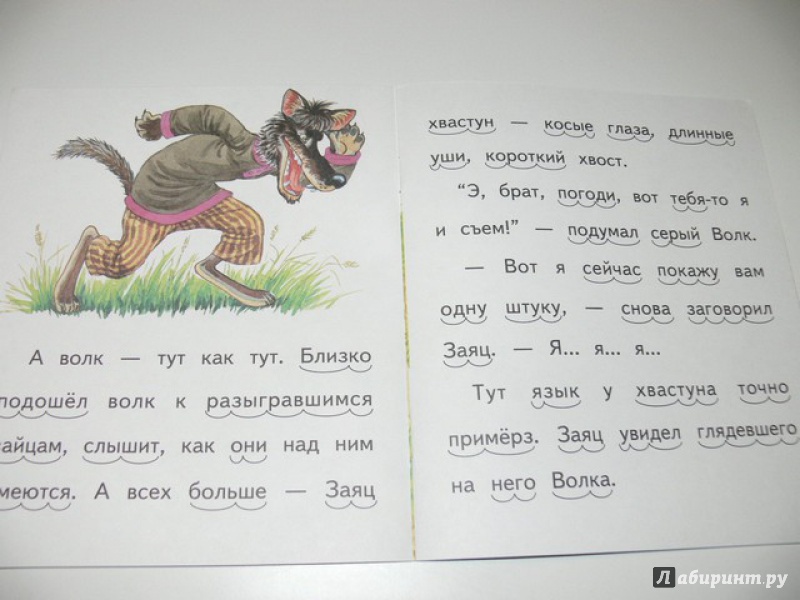 А волк — тут как тут. Близко
подошёл волк к разыгравшимся
зайцам, слышит, как они над ним
смеются. А всех больше — Заяц
хвастун — косые глаза, длинные
уши, короткий хвост.
“Э, брат, погоди, вот тебя-то я
и съем!” — подумал серый Волк.
— Вот я сейчас покажу вам
одну штуку, — снова заговорил
Заяц. — Я... я... я...
Тут язык у хвастуна точно
примёрз. Заяц увидел глядевшего
на него Волка.
Лабиринт.ру